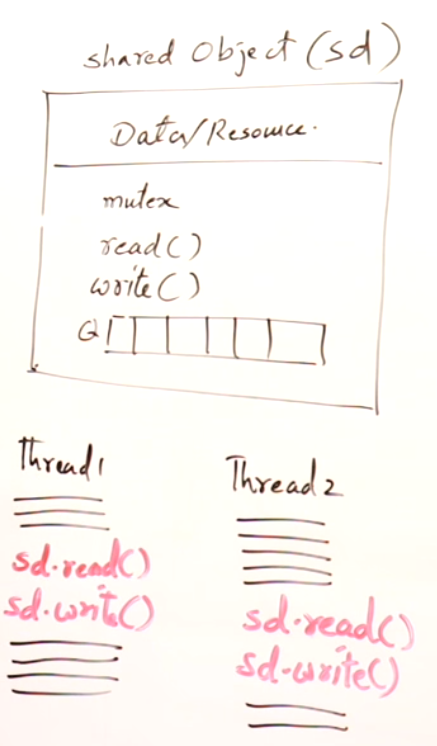 shared Object (sd)
Data/Resource.
mutex
read()
write()
Q
Thread1
sd.read()
sd.write()
Thread2
sd.read()
sd.write()